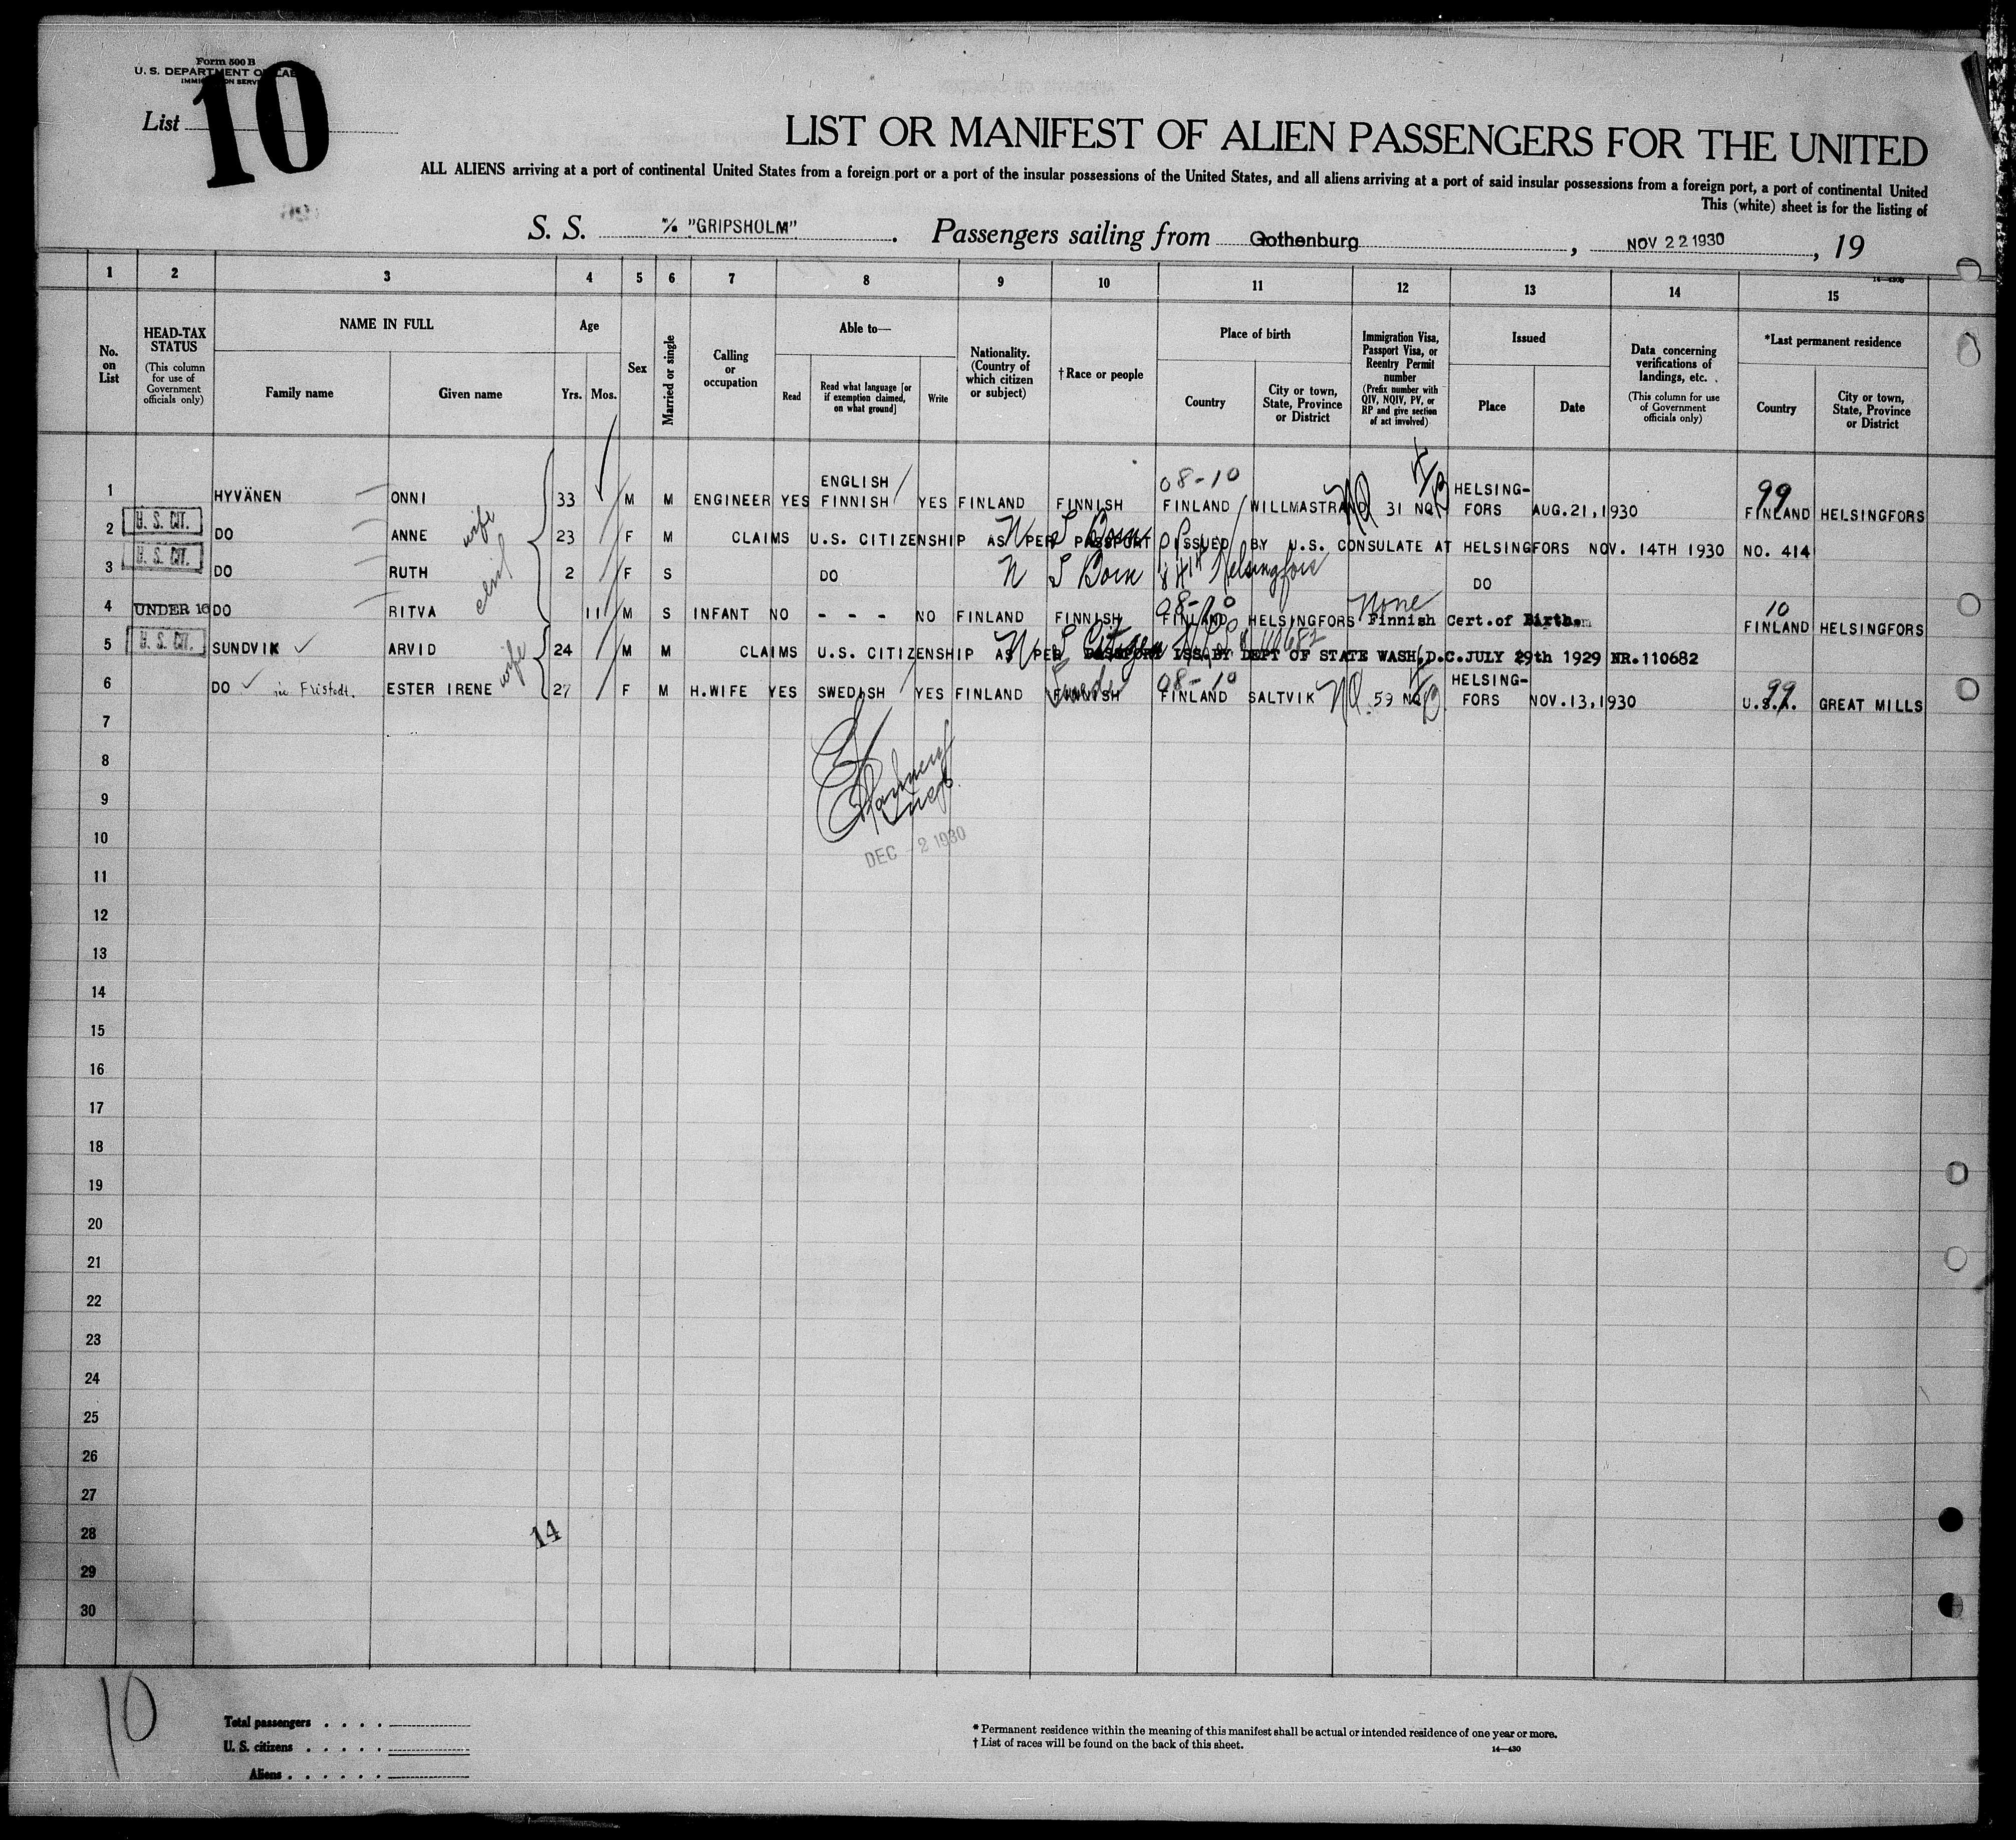 Form 500 B
U. S. DEPARTMENT OF LABOR
IMMIGRATION SERVICE
List 10
LIST OR MANIFEST OF ALIEN PASSENGERS FOR THE UNITED
ALL ALIENS arriving at a port of continental United States from a foreign port or a port of the insular possessions of the United States, and all aliens arriving at a port of said insular possessions from a foreign port, a port of continental United
This (white) sheet is for the listing of
S. S. M/S "GRIPSHOLM". Passengers sailing from Gothenburg, NOV 22 1930, 19
14—430B
1 2 3 4 5 6 7 8 9 10 11 12 13 14 15
No. on List
HEAD-TAX STATUS
(This column for use of Government officials only)
NAME IN FULL
Family name
Given name
Age
Yrs. Mos.
Sex
Married or single
Calling or occupation
Able to—
Read
Read what language [or if exemption claimed, on what ground]
Write
Nationality. (Country of which citizen or subject)
† Race or people
Place of birth
Country
City or town, State, Province or District
Immigration Visa, Passport Visa, or Reentry Permit number
(Prefix number with QIV, NQIV, PV, or RP and give section of act involved)
Issued
Place
Date
Data concerning verifications of landings, etc.
(This column for use of Government officials only)
*Last permanent residence
Country
City or town, State, Province or District
08-10 99
1 HYVÄNEN ONNI 33 M M ENGINEER YES ENGLISH FINNISH YES FINLAND FINNISH FINLAND WILLMASTRAND 31 NQ HELSING-FORS AUG.21,1930 FINLAND HELSINGFORS
2 U. S. CIT. DO ANNE wife 23 F M CLAIMS U.S. CITIZENSHIP AS PER PASSPORT ISSUED BY U.S. CONSULATE AT HELSINGFORS NOV. 14TH 1930 NO. 414
3 U. S. CIT. DO RUTH 2 F S DO Born Helsingfors DO
08-10 None 10
4 UNDER 16 DO RITVA 11 M S INFANT NO - - - NO FINLAND FINNISH FINLAND HELSINGFORS Finnish Cert.of Birth. FINLAND HELSINGFORS
5 U. S. CIT. SUNDVIK ARVID 24 M M CLAIMS U.S. CITIZENSHIP AS PER PASSPORT ISS.BY DEPT OF STATE WASH.D.C.JULY 29th 1929 NR.110682
Citizen 110682
08-10 99
6 DO ESTER IRENE wife 27 F M H.WIFE YES SWEDISH YES FINLAND FINNISH FINLAND SALTVIK 59 NQ HELSING-FORS NOV.13,1930 U.S.A. GREAT MILLS
7
8
9
10
DEC - 2 1930
11
12
13
14
15
16
17
18
19
20
21
22
23
24
25
26
27
28
14
29
30
10
Total passengers . . . .
U. S. citizens . . . . .
Aliens . . . . . .
* Permanent residence within the meaning of this manifest shall be actual or intended residence of one year or more.
† List of races will be found on the back of this sheet.
14—430